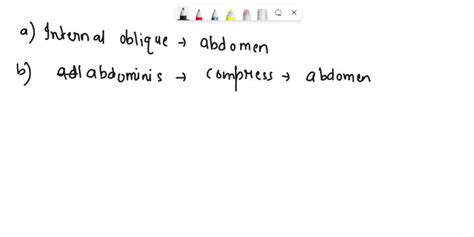 a) Internal oblique → abdomen
b) abdominis → compress → abdomen